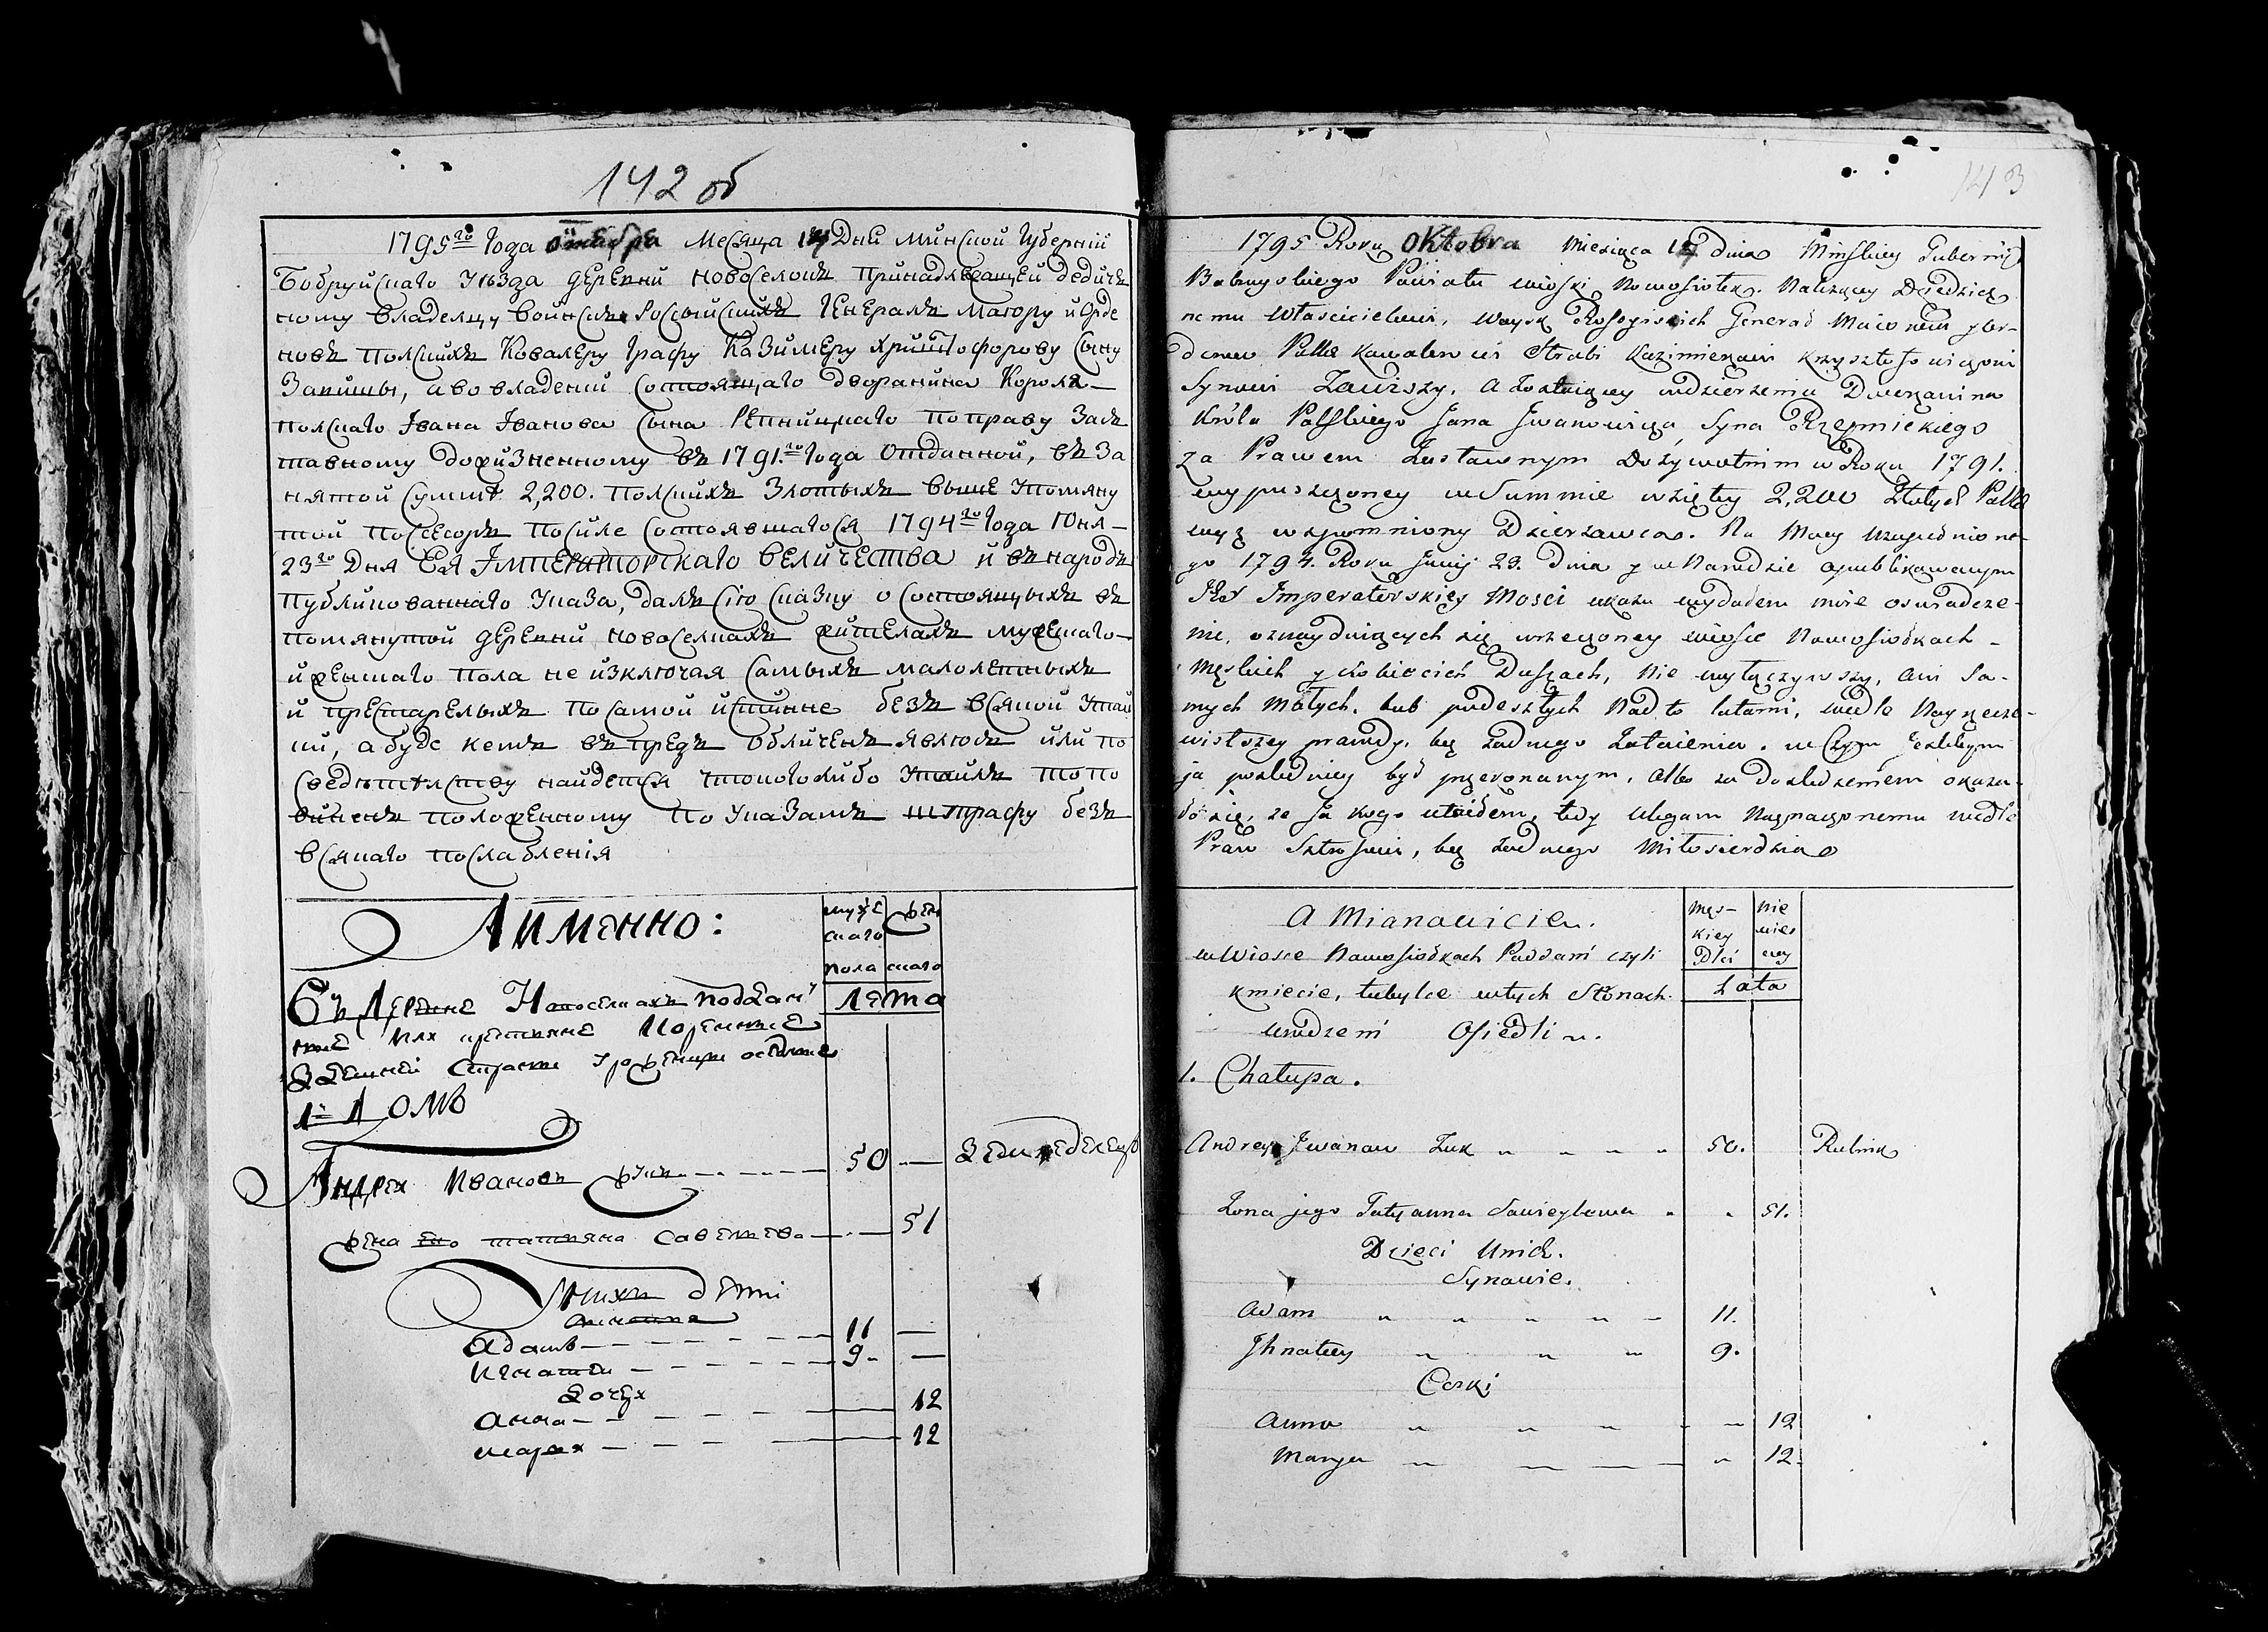 142 об
1795го Года октября Месяца 14 Дня Минской Губернии
Бобруйскаго Уѣзда деревни новоселокъ принадлежащей дедичъ
ному владелцу войскъ Россыйскихъ Генералъ Маіору и Орде
новъ полскихъ Ковалеру Графу Казимеру христофорову сыну
Завишы, а во владении состоящаго дворанина Короля
полскаго Івана Іванова сына Репницкаго по праву Заст
тавному дожизненному въ 1791го Года отданной, въ За
нятой сумме 2,200. полскихъ Злотыхъ выше упомяну
той посесоръ по силе состоявшагося 1794го Года Июня
23го Дня Ея Імператорскаго величества и въ народъ
публикованнаго Указа, далъ сію сказку о состоящыхъ въ
помянутой деревни новоселкахъ жителахъ мужескаго
и женскаго пола не изключая самыхъ малолетныхъ
и престарелыхъ по самой истинне безъ всякой Утай
ки, а буде кемъ въ предъ обличенъ явлюсь или по
сведѣтелству найдется что кого либо утаилъ то по
виненъ положенному по Указамъ штрафу безъ
всякаго послабленія
Аименно:
мужескаго пола
женскаго
Лета
Въ Деревне Новоселкахъ поддан
ные или крестьяне Коренные
Здешней Стороны Урожденцы оседлые
1й Домъ
Андрей Ивановъ жукъ 50 Земледелецъ
жена его татьяна савельева 51
У нихъ дети
Адамъ 11
Игнатей 9
Дочери
анна 12
марья 12
143
1795 Roku Oktobra Miesiąca 14 Dnia Minskiey Gubernij
Bobruyskiego Pawiatu wioski Nowosiołek. Nalezącey Dziedzicz
nemu Właścicielowi, Woysk Rossyiskich Generał Maiorowi y or-
derow Polls Kawalerowi Hrabi Kazimierzowi Krzysztofowiczowi
Synowi Zawiszy, A Zostaiącey wdzierzeniu Dworzanina
Króla Polskiego Jana Jwanowicza Syna Rzepnickiego
za Prawem Zastawnym Dożywotnim w Roku 1791.
wypuszczoney w Summie wzięty 2,200 Złotych Polls
wyz wspomniony Dzierzawca. Na Mocy Uzupednione-
go 1794. Roku Junij 23. Dnia y w Narodzie opublikowanym
Jey Imperatorskiey Mosci ukazu wydałem nnie oswiadcze-
nie, oznaydniących się wrzeczoney wiosce Nawosiołkach
Męskich y kobiecich Duszach, Nie wyłączywszy, ani Sa-
mych Małych, lub podeszłych Nad to latami, wedle Nayrzecze-
wistszey prawdy, bez zadnego Zataienia. w Czym jeżelibym
ja poźledniey był przekonanym, Albo za Doźledzeniem okaza-
ło się, ze Ja kogo utaiłem, tedy ulegam Naznaczonemu wedle
Praw Sztrofowi, bez zadnego Miłosierdzia
A Mianowicie.
Męs-
kiey
Płci
Nie
wies
ciey
Lata
w Wiosce Nawosiołkach Poddani czyli
kmiecie, tubylce wtych Stronach
urodzeni Osiedli.
1. Chałupa.
Andrey Jwanow Zuk 50. Rolnik
Zona jego Tatyanna Sawieylowa 51.
Dzieci Unich.
Synowie.
Adam 11.
Jhnatey 9.
Corki
Anna 12
Marya 12.